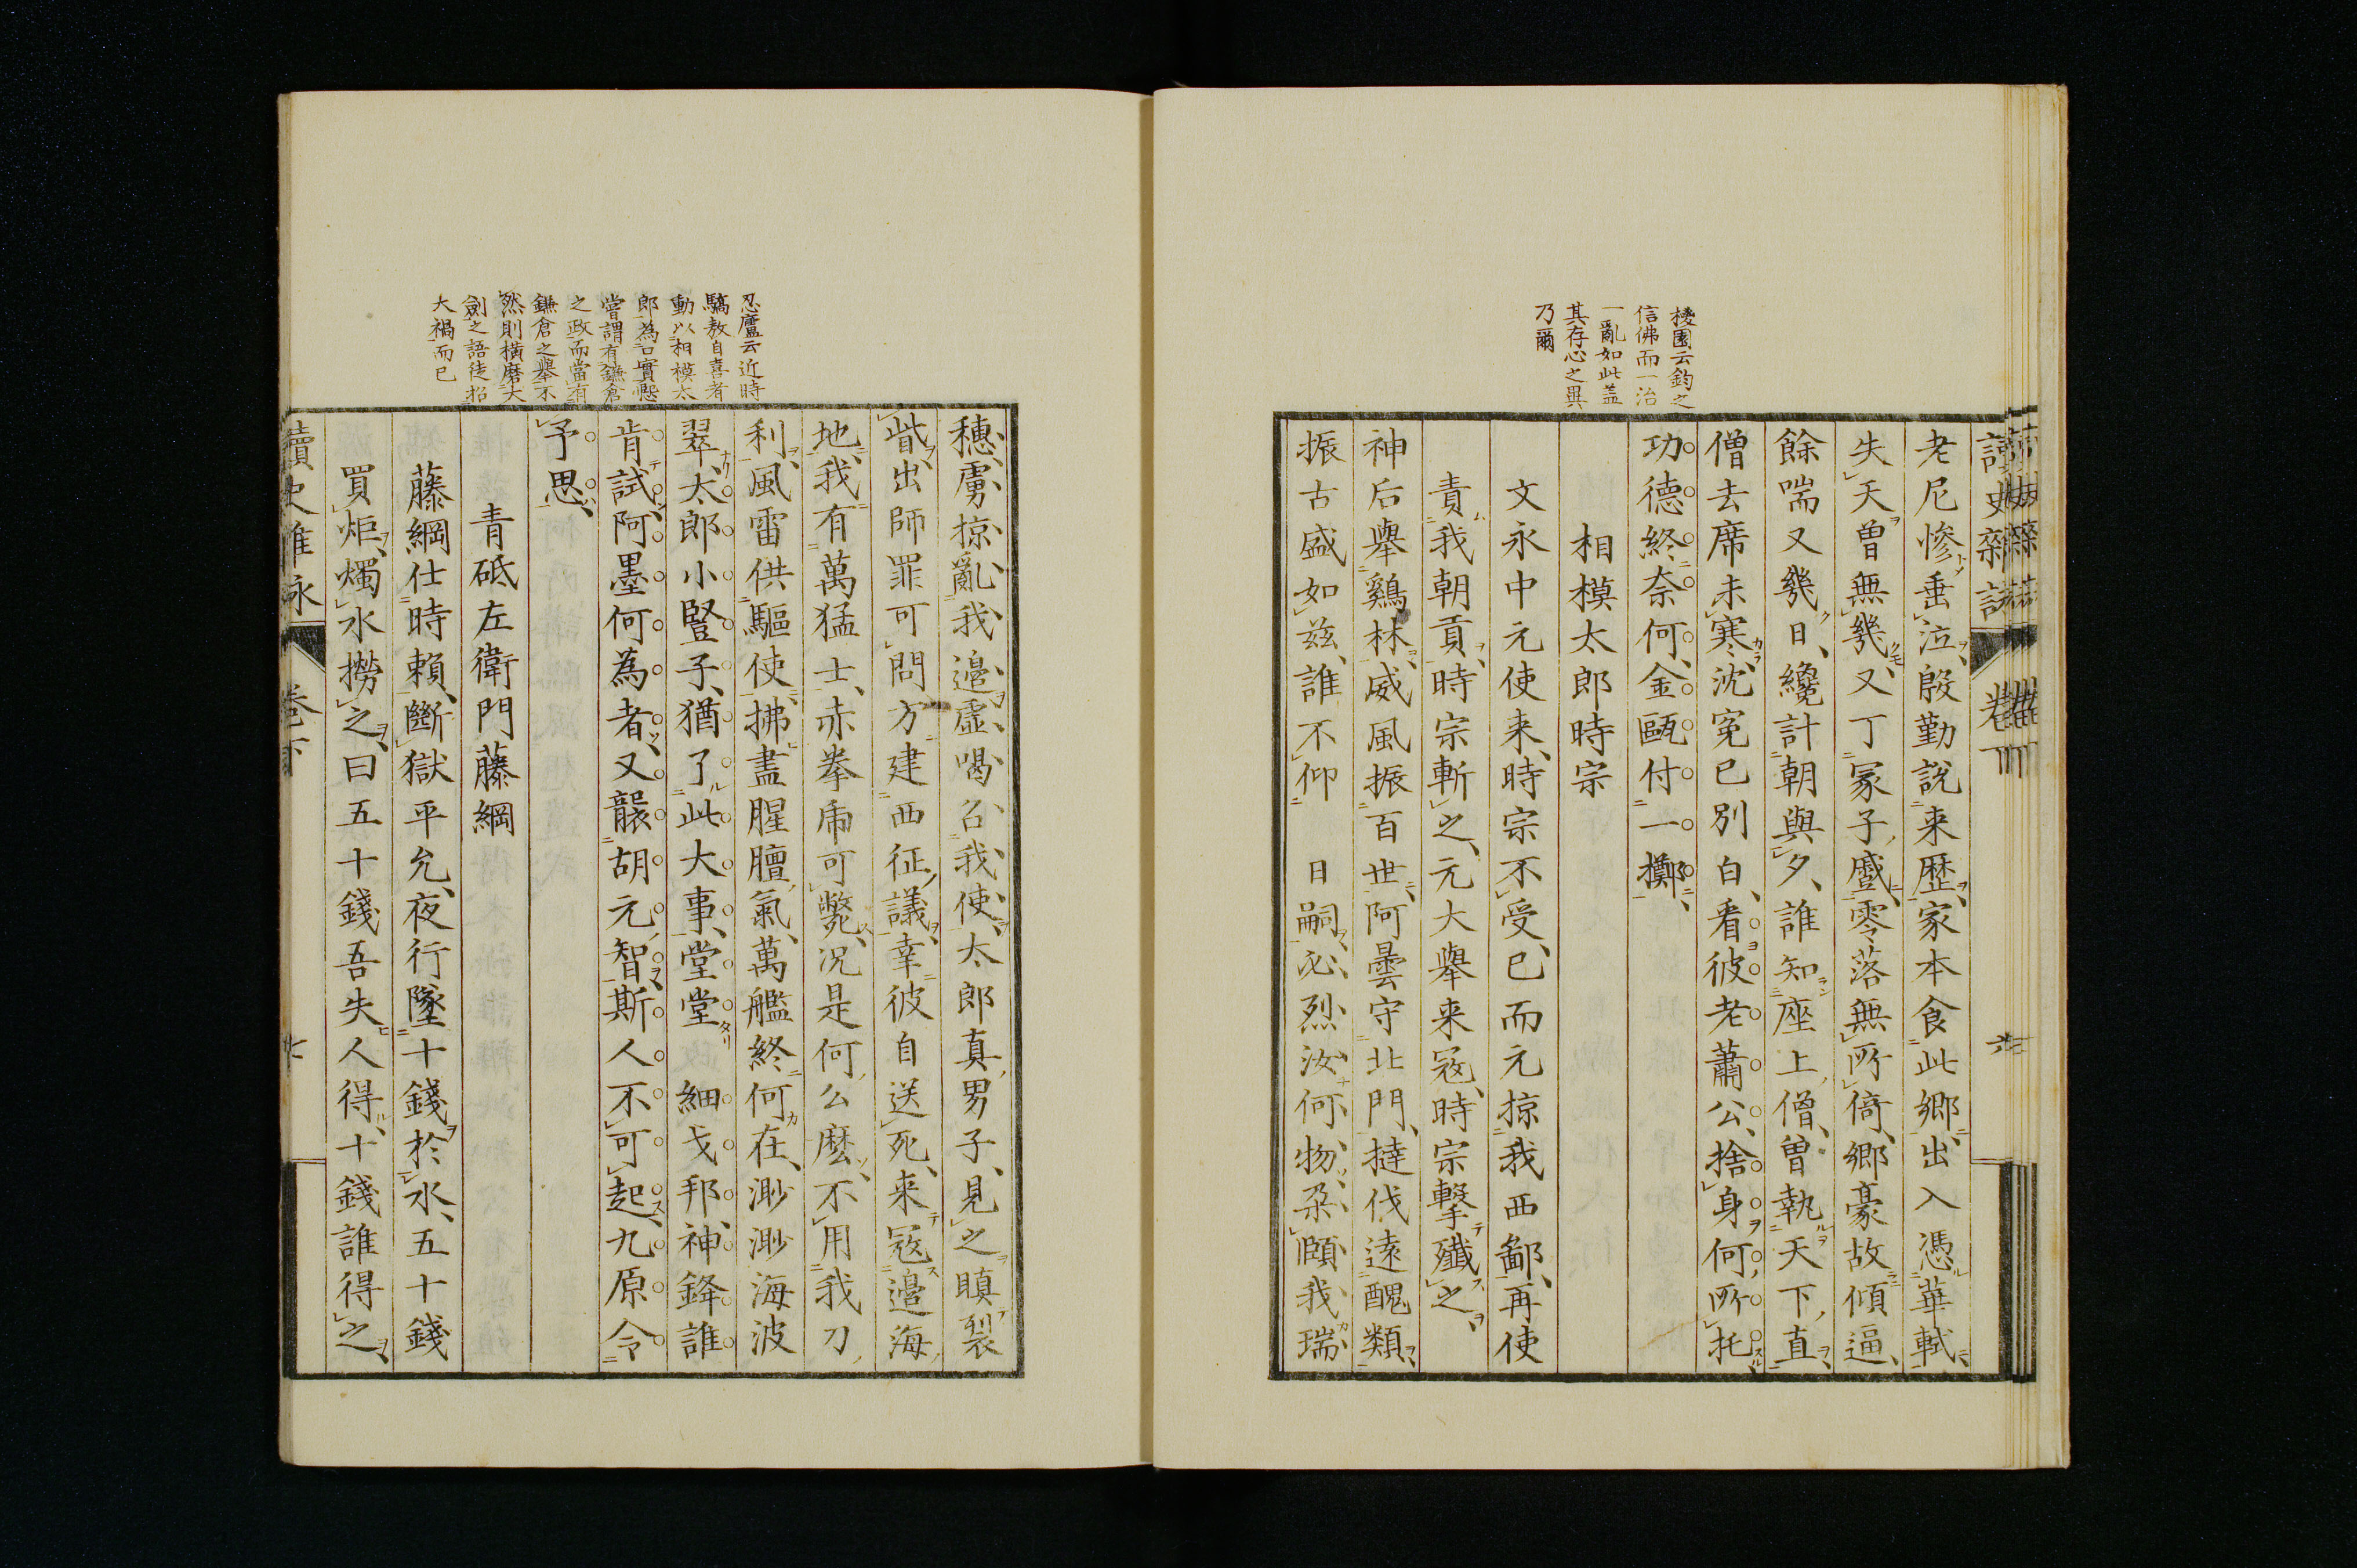 棱園云鈞之
信佛而一治
一亂如此盖
其存心之異
乃爾
老尼惨垂泣殷勤說来歴家本食此郷出入憑華軾
失天曽無幾又丁冢子慼零落無所倚郷豪故傾逼
餘喘又幾日纔計朝與夕誰知座上僧曽執天下直
僧去席未寒沈冤已別白看彼老蕭公捨身何所托
功德終奈何金甌付一擲
相模太郎時宗
文永中元使来時宗不受已而元掠我西鄙再使
責我朝貢時宗斬之元大舉来寇時宗擊殲之
神后舉鷄林威風振百世阿曇守北門撻伐遠醜類
振古盛如兹誰不仰 日嗣忒烈汝何物朶頤我瑞
忍廬云近時
驕敖自喜者
動以相模太
郎為口實愨
嘗謂有鎌倉
之政而當有
鎌倉之舉不
然則横磨大
劍之語徒招
大禍而已
穗虜掠亂我邉虚喝召我使太郎真男子見之瞋裂
眥出師罪可問方建西征議幸彼自送死来寇邉海
地我有萬猛士赤拳乕可斃况是何公麼不用我刀
利風雷供驅使拂盡腥膻氣萬艦終何在渺渺海波
翠太郎小豎子猶了此大事堂堂細戈邦神鋒誰
肯試阿墨何為者又襲胡元智斯人不可起九原令
予思
青砥左衛門藤綱
藤綱仕時頼斷獄平允夜行墜十錢於水五十錢
買炬燭水撈之曰五十錢吾失人得十錢誰得之
讀史雜詠 卷下